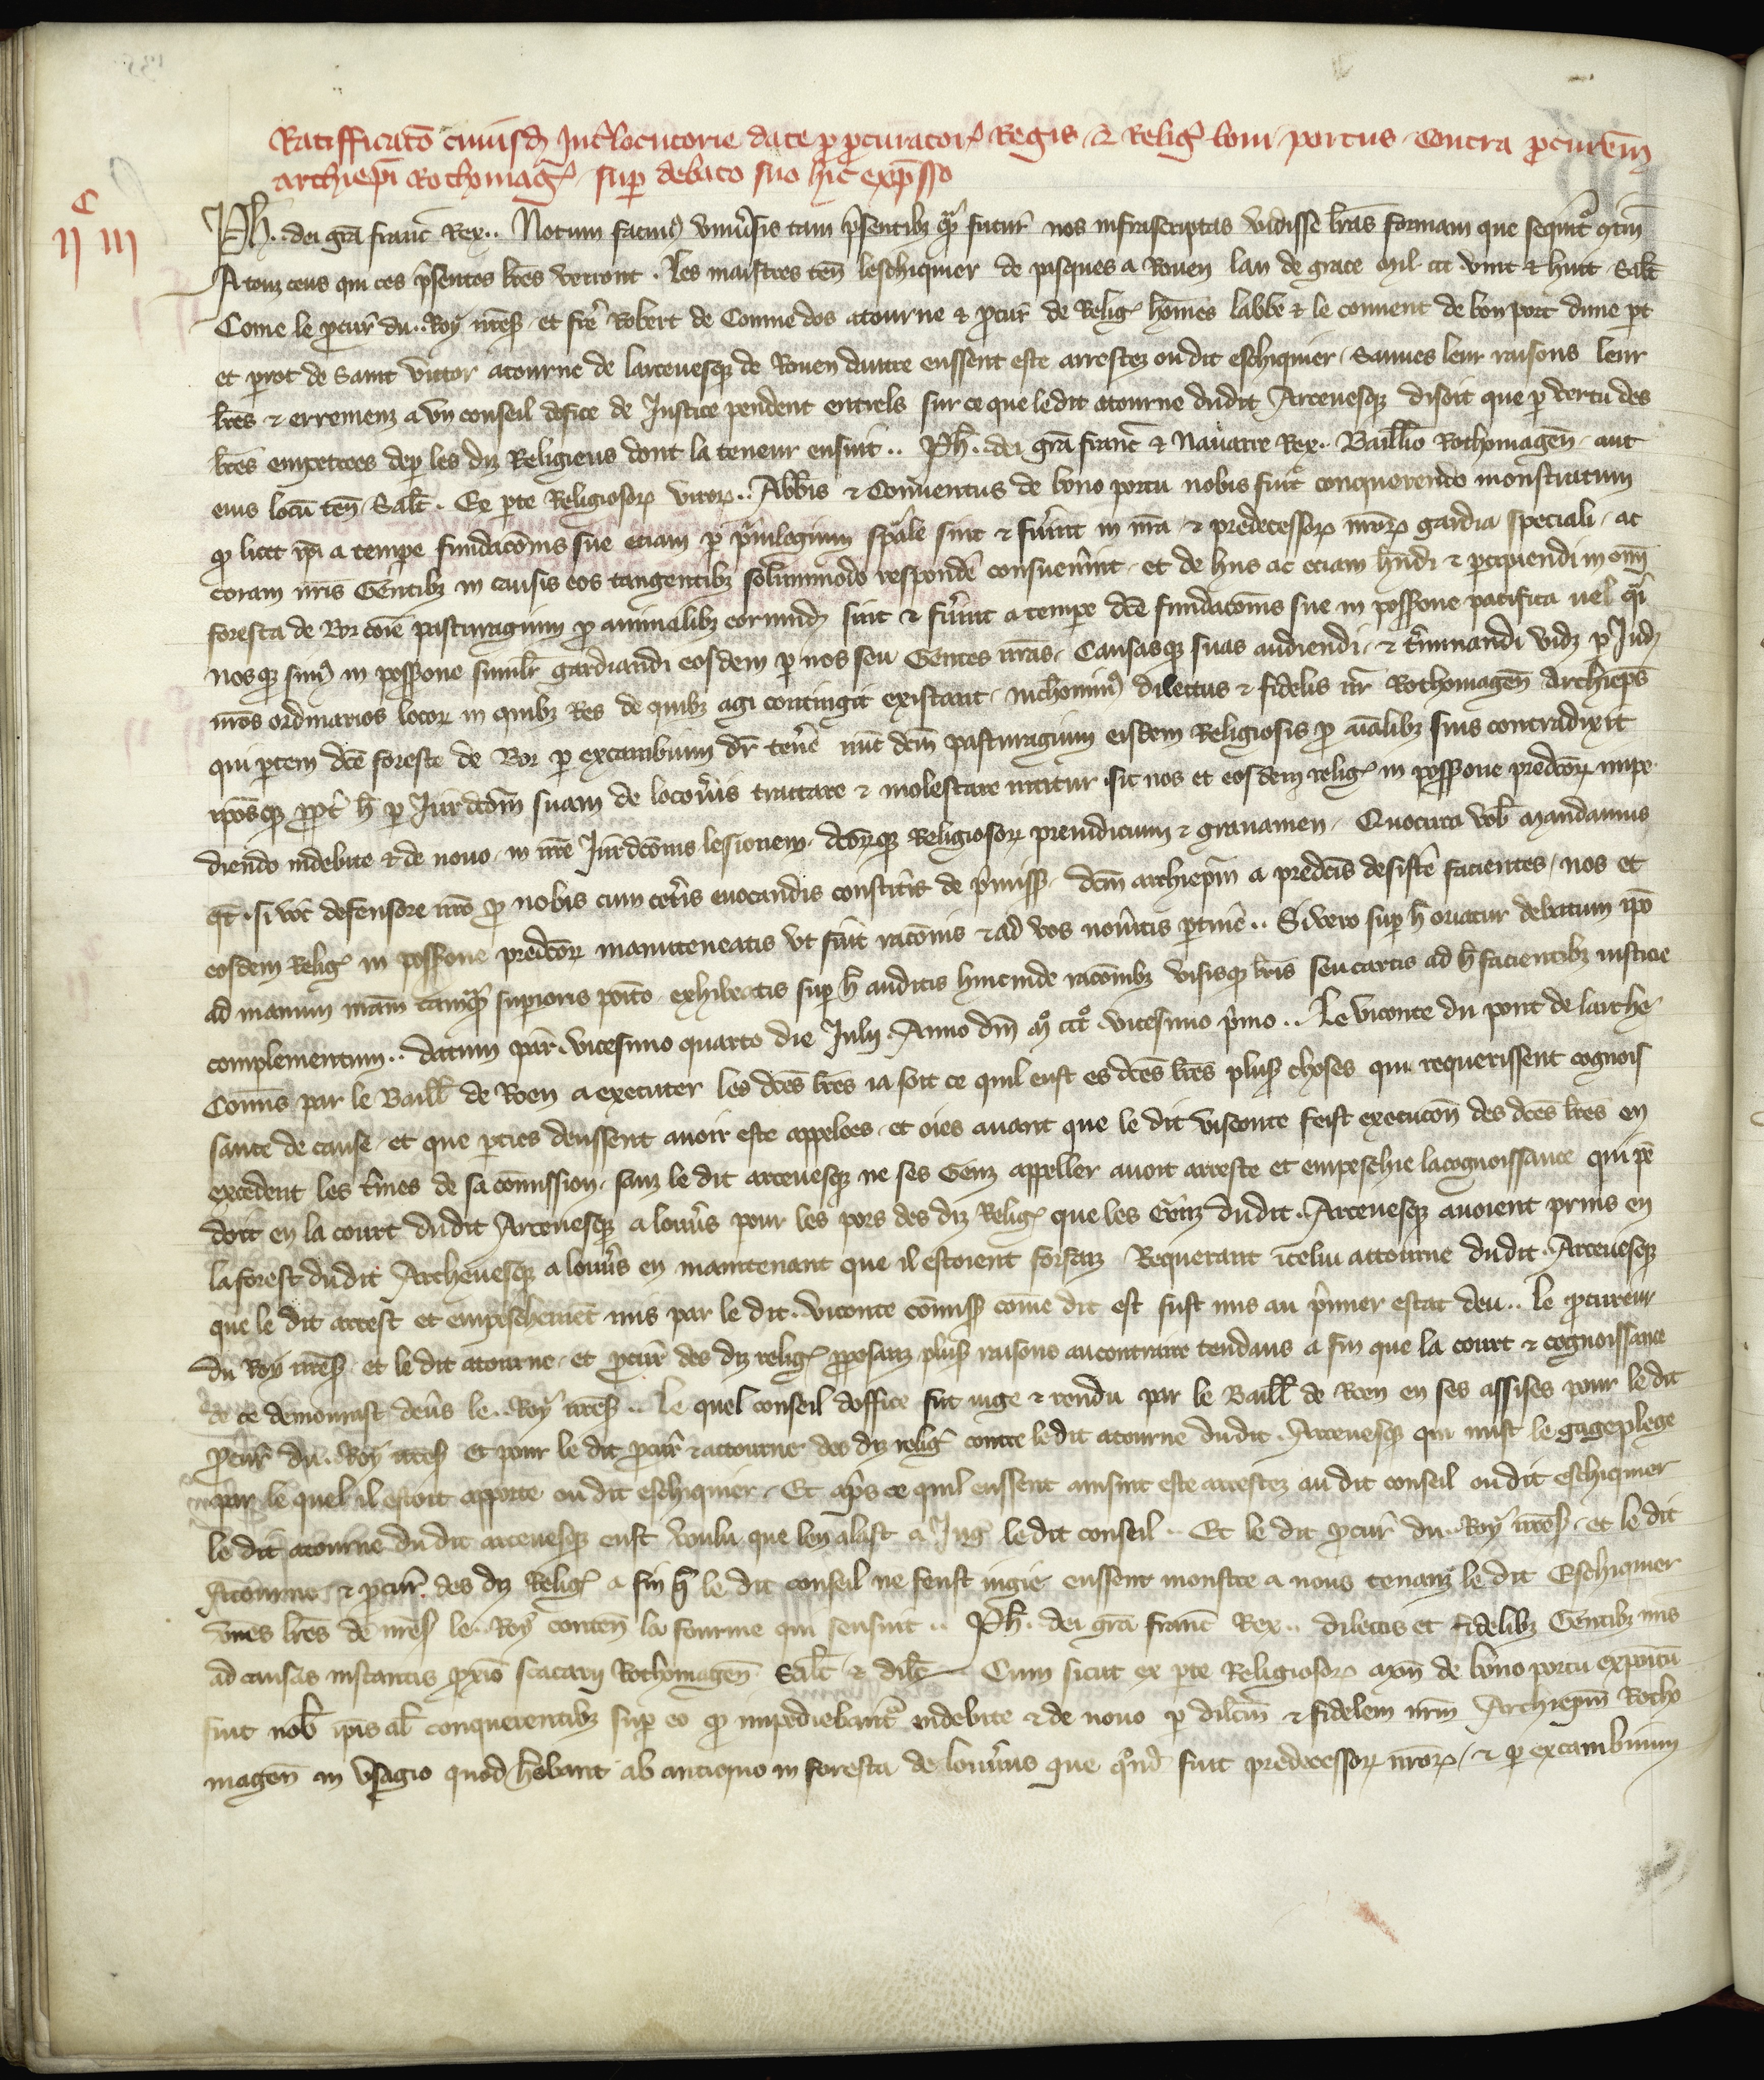 Ratifficato͞ cuiusd' Int͛locutorie date p͛ ꝓcurator' Regis · & Relig' boni portus · Contra ꝓcur͞em
archiep͞i Rothomag' · sup͛ debato suo hic exp͛sso
C
II III
Ph͛ · dei gr͞a franc͞ Rex .. Notum facim' vniu͛sis tam p͛sentib' q͛m futur͛ nos infrascriptas vidisse l͞ras formam que sequit͛ q͛tin͞
A touz ceus qui ces p͛sentes l͞res verront · Les maistres ten͞ leschiquier de pasques a Rouen lan de grace mil ccc vint & huit · Sal͞t
Come le ꝓcur͛ du .. Roy nr͞es' · et fr͛e Robert de Conmedos atourne & ꝓcur͛ de Relig' ho͞mes labbe & le couuent de bon port dune p͛t
et pirot de Saint victor atourne de larceuesq' de Rouen dautre eussent este arrestez oudit eschiquier · Sauues leur raisons leur
l͞res & erremenz a vn conseil doffice de Justice pendent entrels sur ce que ledit atourne dudit Arceuesq' disoit que p͛ vertu des
l͞res empetrees dep͛ les diz Religieus dont la teneur ensuit .. Ph͛ · dei gr͞a franc͞ & Nauarre Rex .. Baill͞io Rothomagen͞ · aut
eius locu͞ ten͞ · Sal͞t · Ex p͛te Religiosor' viror' .. Abb͞is & Conuentus de bono portu nobis fuit conquerendo monstratum
q͛ licet ip͞i a tempe fundaco͞nis sue etiam p͛ p͛uilegium sp͞ale sint & fu͛int in n͞ra & predecessor' n͞ror' gardia speciali · ac
coram nr͞is Gentib' in causis eos tangentib' solummodo respond͛e consueu͛int · et de hiis ac etiam h͞ndi & p͛cipiendi in om͞i
foresta de Bor co͞ie pasturagium p͛ animalib' eorumd' sint & fu͛int a tempe dc͞e fundaco͞nis sue in poss͞one pacifica uel q͛i
nosq' sim' in poss͞one simil͛r gardiandi eosdem p͛ nos seu Gentes nr͞as · Causasq' suas audiendi · & t͛minandi vid' p͛ Jud'
nr͞os ordinarios locor' in quib' Res de quib' agi contingit existant · nichomin' dilectus & fidelis nr͞ Rothomagen͞ Archiep͞s
qui p͛tem dc͞e foreste de Bor p͛ excambium d͞r ten͛e nu͞c dc͞m pasturagium eisdem Religiosis p͛ ai͞alib' suis contradixit
ip͞osq' ꝓpt͛ h͞ p͛ Jur͞dco͞m suam de locou͛is tractare & molestare nititur · sic nos et eosdem relig' in poss͞one predc͞or' impe
diendo indebite & de nouo · in nr͞e Jur͞dco͞nis lesionem · dc͞or'q' Religiosor' preiudicium & grauamen · Quocirca vob͞ Mandamus
q͛t · si voc͞ defensore nr͞o ꝓ nobis cum cet͛is euocandis constit͛it de p͛miss' · dc͞m archiep͞m a predc͞is desist͛e facientes · nos et
eosdem Relig' in poss͞one predc͞or' manuteneatis vt fu͛it raco͞nis & ad vos nou͛itis p͛tin͛e .. Si vero sup͛ h͞ oriatur debatum ip͞o
ad manum nr͞am tamq͛m sup͛ioris po͞ito · exhibeatis sup͛ h͞ auditis hincinde raco͞nib' visisq' l͞ris seu cartis ad h͞ facientib' iusticie
complementum .. datum par͞ · vicesimo quarto die Julij Anno dn͞i mo ccco vicesimo p͛mo .. Le viconte du pont de larche
Co͞mis par le Baill͞ de Roen a executer les dc͞es l͞res ia soit ce quil eust es dc͞es l͞res plus' choses qui requerissent cognois
sance de cause · et que p͛ties deussent auoir este appelees · et oies auant que le dit visconte feist execuco͞n des dc͞es l͞res en
excedent les t͛mes de sa co͞mission · sanz le dit arceuesq' ne ses Genz appeller auoit arreste et empeschie lacognoissance qui pe͞
doit en la court dudit Arceuesq' a louu͛s pour les pors des diz Relig' que les Genz dudit · Arceuesq' auoient prins en
la forest dudit Archeuesq' a louu͛s en maintenant que il estoient forfaiz Requerant icelui attourne dudit · Arceuesq'
que le dit arrest et empeschem͞et mis par le dit · viconte co͞miss' co͞me dit est fust mis au p͛mier estat deu .. le ꝓcureur
du Roy nr͞es' · et le dit atourne · et ꝓcur͛ des diz relig' ꝓposanz plus' raisons aucontraire tendans a fin que la court & cognoissance
de ce demourast deu͛s le .. Roy nr͞es' .. Le quel conseil doffice fut iuge & rendu par le Baill͞ de Roen en ses assises pour le dit
ꝓcur͛ du · Roy nr͞es' et pour le dit ꝓcur͛ & attourne des diz relig' contre ledit atourne dudit · Arceuesq' qui mist le gageplege
par le quel il estoit apporte oudit eschiquier · Et ap͛s ce quil eussent ainsint este arrestez au dit conseil oudit eschiquier
le dit atourne dudit arceuesq' eust voulu que len alast a Jug͛ le dit conseil .. Et le dit ꝓcur͛ du .. Roy nr͞es' · et le dit
Atourne · & ꝓcur͛ des diz Relig' a fin q͛ le dit conseil ne feust iugie eussent monstre a nous tenanz le dit Eschiquier
vnes l͞res de nr͞es' le .. Roy conten͞ la fourme qui sensuit .. Ph͛ · dei gr͞a franc͞ Rex .. dilectis et fidelib' Gentib' n͞ris
ad causas instantis ꝓxi͞o scacarij Rothomagen͞ · Sal͞t & dil͞c Cum sicut ex p͛te Religiosor' mo͞n de bono portu expo͞itu͞
fuit nob͞ ip͞is al͞ conquerentib' sup͛ eo q͛ impediebant͛ indebite & de nouo p͛ dil͞cm & fidelem nr͞m Archiep͞m Rotho
magen͞ in vsagio quod h͞ebant ab antiquo in foresta de louu͛iis que q͛nd͞ fuit predecessor' nr͞or' · & p͛ excambium